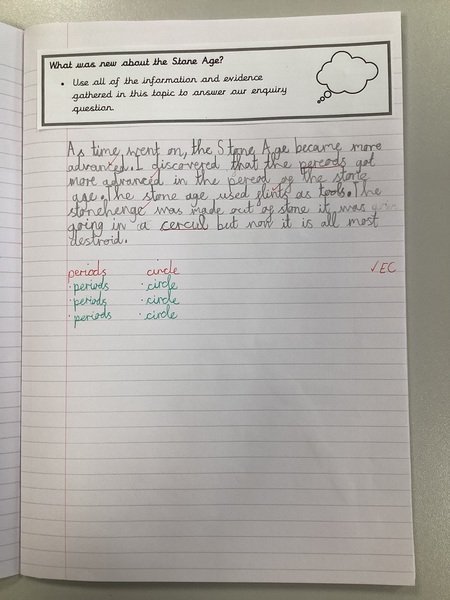 What was new about the Stone Age?
• Use all of the information and evidence
gathered in this topic to answer our enquiry
question.
As time went on, the Stone Age became more
advanced. I discovered that the pereods got
more advanced in the pereod of the stone
age. The stone age used flints as tools. The
stonehenge was made out of stone it was
going in a cercul but now it is all most
destroid.
periods circle
· periods · circle
· periods · circle
· periods · circle
✓EC